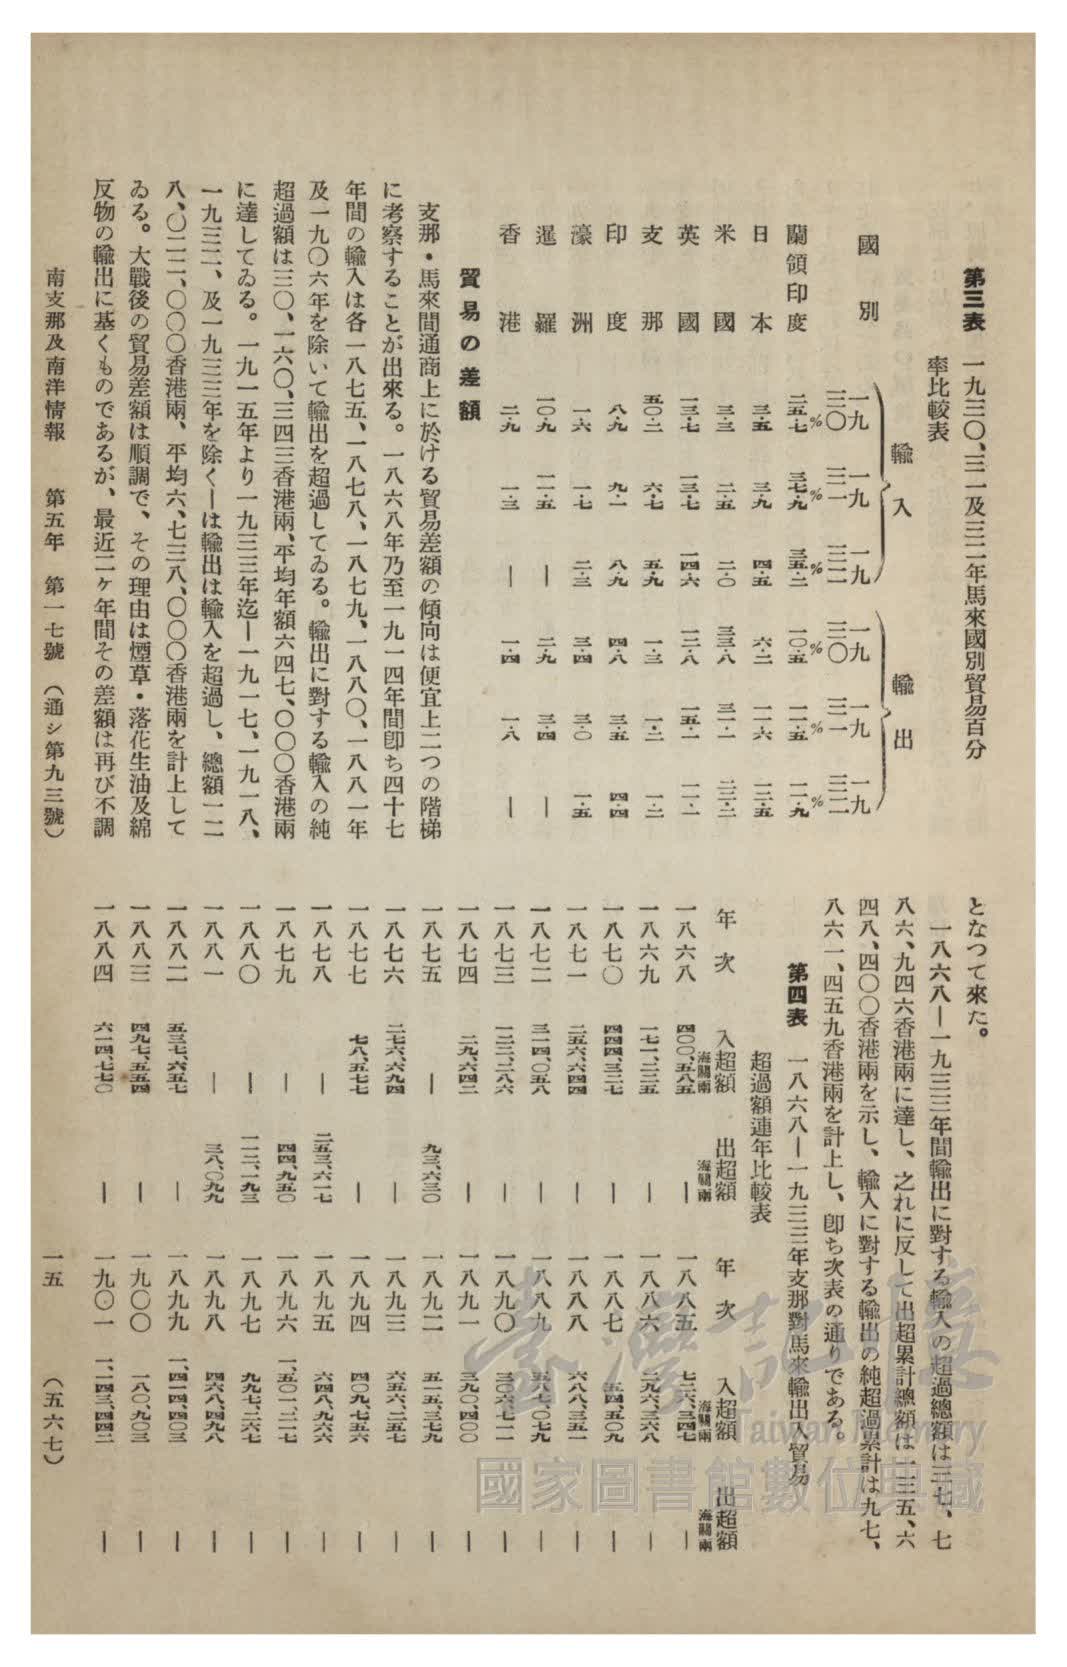 第三表 一九三〇、三一及三二年馬來國別貿易百分
率比較表
國別 輸入 輸出
一九三〇 一九三一 一九三二 一九三〇 一九三一 一九三二
蘭領印度 二五・七% 三七・九% 三五・二% 一〇・五% 一一・五% 一一・九%
日本 三・五 三・九 四・五 六・二 一一・六 一三・五
米國 三・三 二・五 二・〇 三三・八 三一・一
英國 一三・七 一三・七 一四・六 一二・八 一五・一 一一・一
支那 五〇・二 六・七 五・九 一・三 一・二 一・二
印度 八・九 九・一 八・九 四・八 三・五 四・四
濠洲 一・六 一・七 二・三 三・四 三・〇 一・五
暹羅 一〇・九 一一・五 — 二・九 三・四 —
香港 二・九 一・三 — 一・四 一・八 —
貿易の差額
支那・馬來間通商上に於ける貿易差額の傾向は便宜上二つの階梯
に考察することが出來る。一八六八年乃至一九一四年間卽ち四十七
年間の輸入は各一八七五、一八七八、一八七九、一八八〇、一八八一年
及一九〇六年を除いて輸出を超過してゐる。輸出に對する輸入の純
超過額は三〇、一六〇、三四三香港兩、平均年額六四七、〇〇〇香港兩
に達してゐる。一九一五年より一九三三年迄—一九一七、一九一八、
一九三二、及一九三三年を除く—は輸出は輸入を超過し、總額一二
八、〇二二、〇〇〇香港兩、平均六、七三八、〇〇〇香港兩を計上して
ゐる。大戰後の貿易差額は順調で、その理由は煙草・落花生油及綿
反物の輸出に基くものであるが、最近二ヶ年間その差額は再び不調
となつて來た。
一八六八—一九三三年間輸出に對する輸入の超過總額は三七、七
八六、九四六香港兩に達し、之れに反して出超累計總額は一三五、六
四八、四〇〇香港兩を示し、輸入に對する輸出の純超過累計は九七、
八六一、四五九香港兩を計上し、卽ち次表の通りである。
第四表 一八六八—一九三三年支那對馬來輸出入貿易
超過額連年比較表
年次 入超額 海關兩 出超額 海關兩
一八六八 四〇〇、五八五 —
一八六九 一七一、二三五 —
一八七〇 四四四、三二七 —
一八七一 二五六、六四四 —
一八七二 三一四、〇五八 —
一八七三 一二二、二八六 —
一八七四 二九、六四二 —
一八七五 — 九三、六三〇
一八七六 二七六、六九四 —
一八七七 七八、五七七 —
一八七八 — 二五三、六一七
一八七九 — 四四、九五〇
一八八〇 — 一一二、一九三
一八八一 — 三八、〇九九
一八八二 五三七、六五七 —
一八八三 四九七、五五四 —
一八八四 六一四、七七〇 —
年次 入超額 海關兩 出超額 海關兩
一八八五 七二六、三四七 —
一八八六 二九六、三六八 —
一八八七 五四、五〇九 —
一八八八 六八八、三五一 —
一八八九 五八七、〇七九 —
一八九〇 三〇六、七一一 —
一八九一 三九〇、四〇〇 —
一八九二 五一五、三七九 —
一八九三 六五六、二五七 —
一八九四 四〇九、七五六 —
一八九五 六四八、九六六 —
一八九六 一、五〇一、二一七 —
一八九七 九九七、二六七 —
一八九八 四六八、四九八 —
一八九九 一、四一四、四〇三 —
一九〇〇 一八〇、九〇三 —
一九〇一 一、一四三、四四二 —
南支那及南洋情報 第五年 第一七號（通シ第九三號）
一五 （五六七）
臺灣記憶
Taiwan Memory
國家圖書館數位典藏